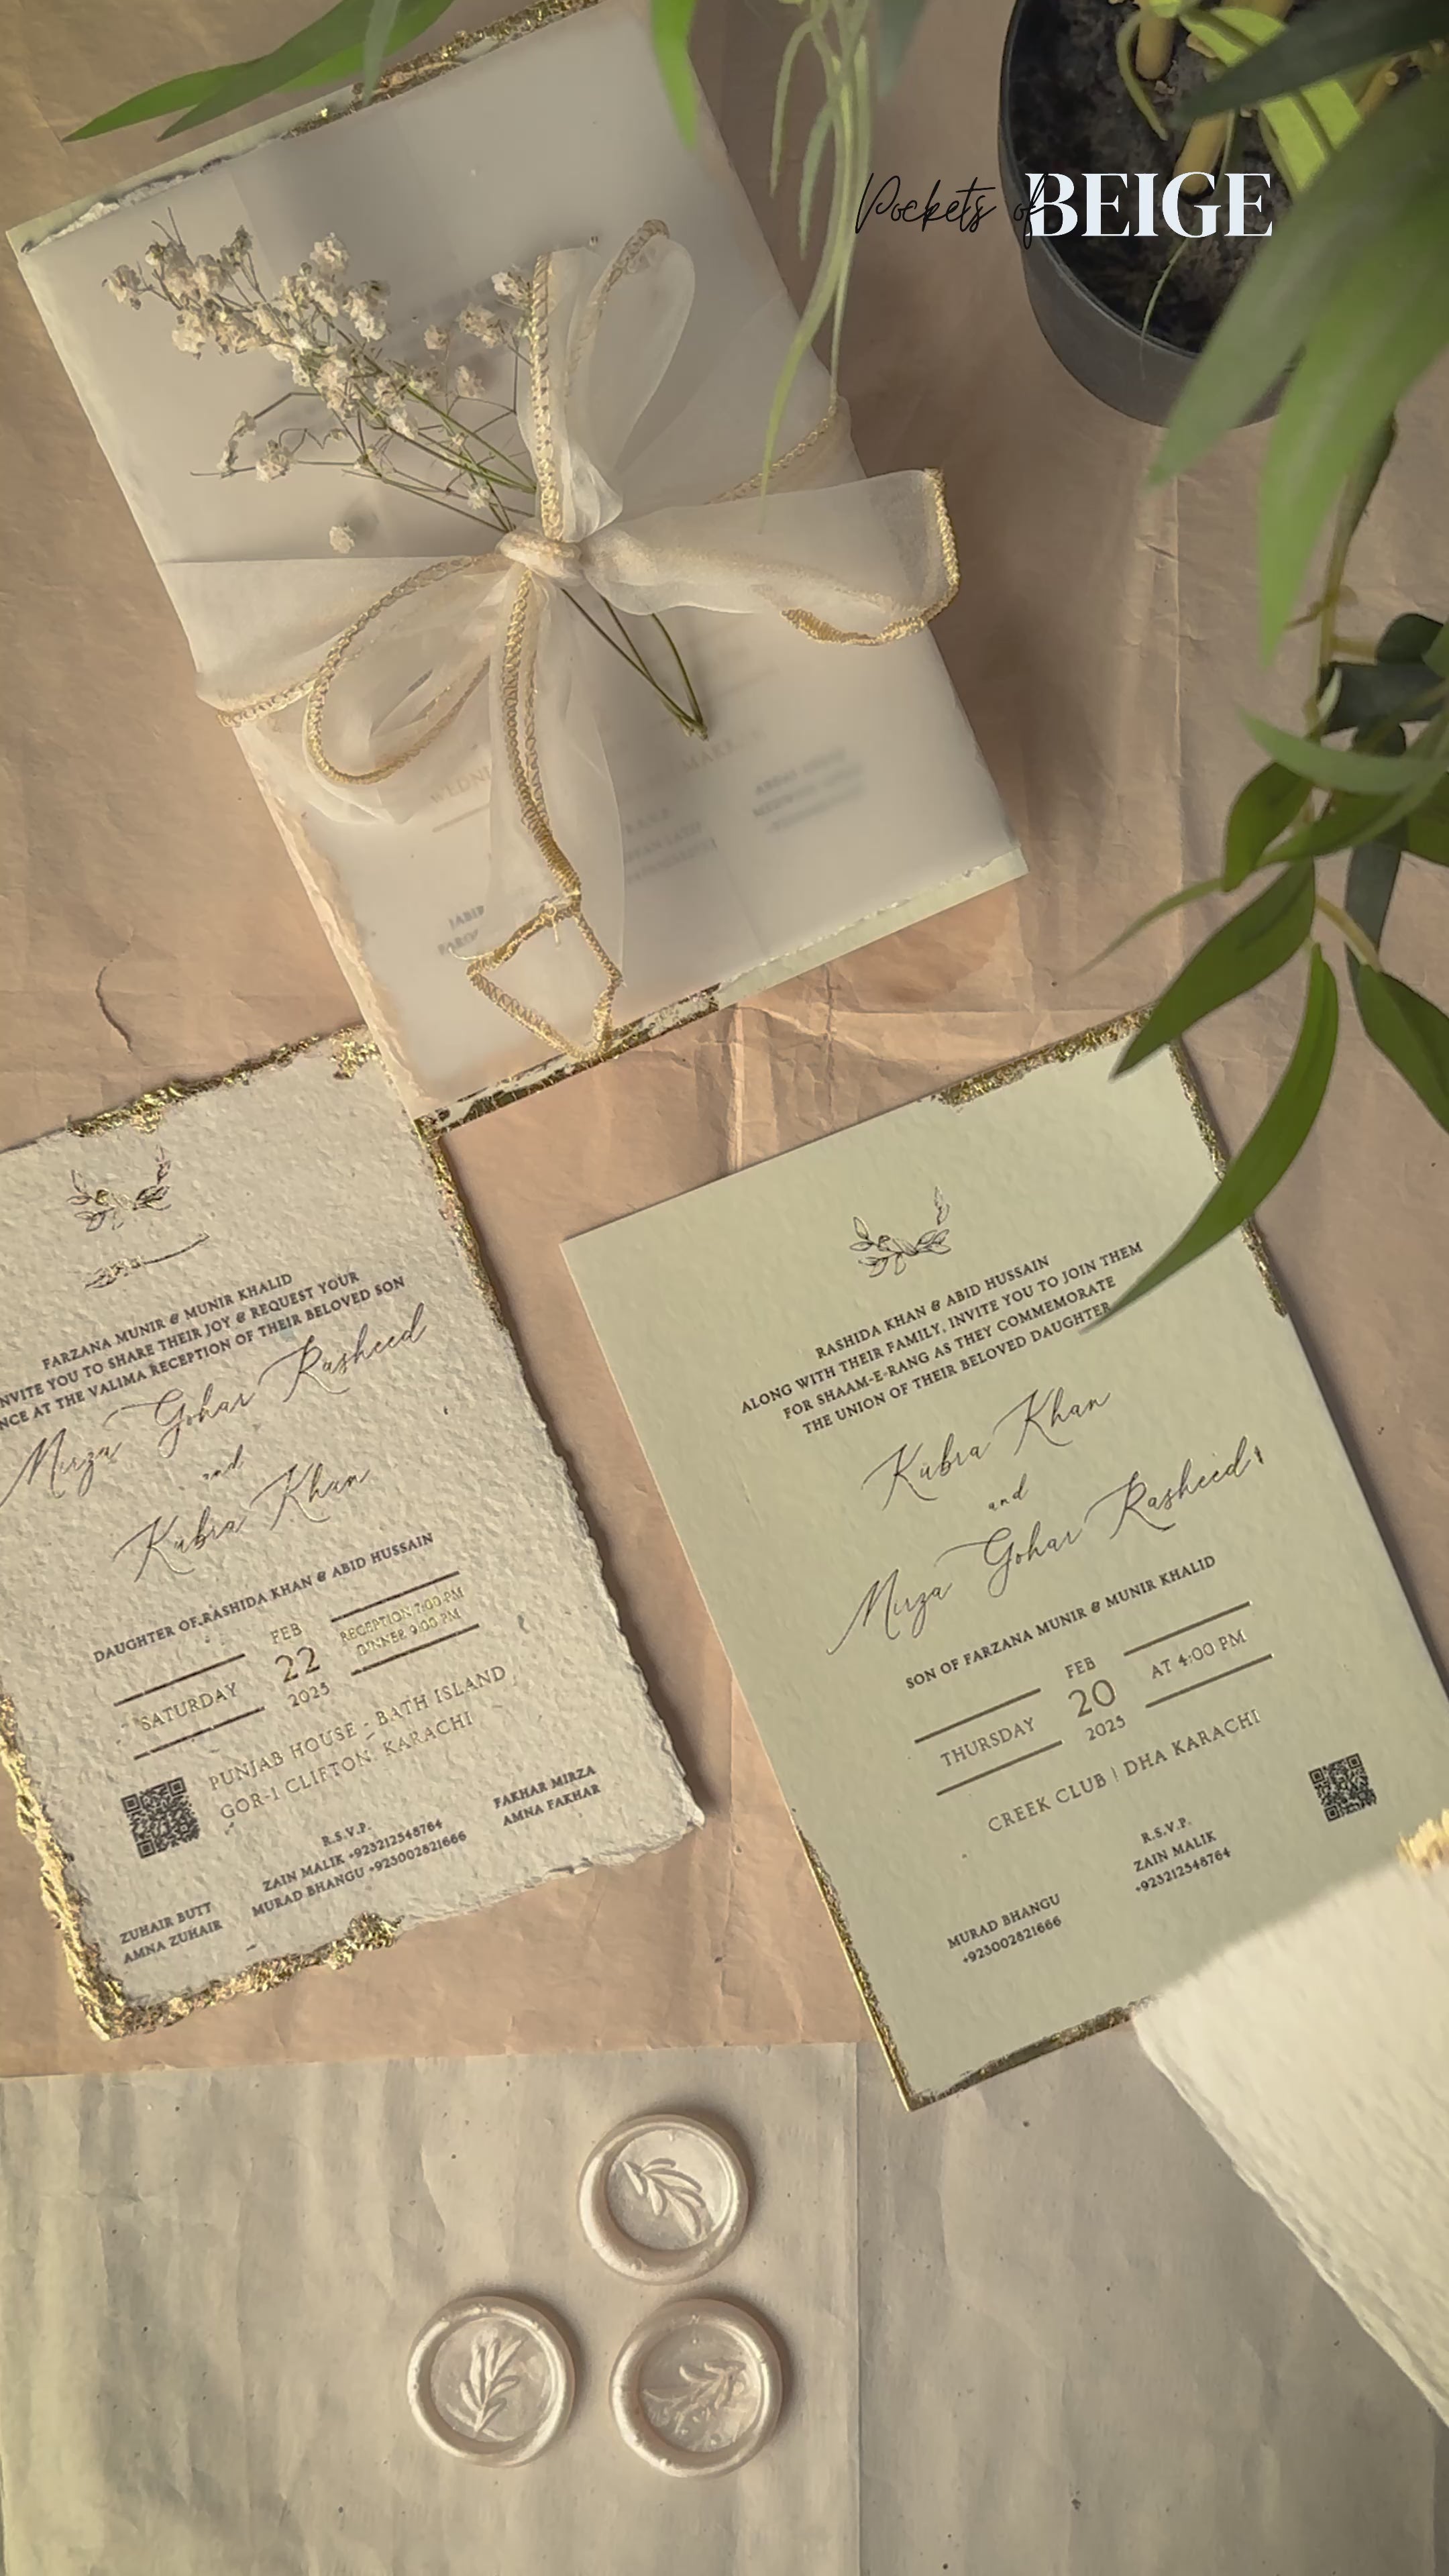 Pockets of BEIGE
FARZANA MUNIR & MUNIR KHALID
NVITE YOU TO SHARE THEIR JOY & REQUEST YOUR
NCE AT THE VALIMA RECEPTION OF THEIR BELOVED SON
Mirza Gohar Rasheed
and
Kubra Khan
DAUGHTER OF RASHIDA KHAN & ABID HUSSAIN
SATURDAY
FEB
22
2025
RECEPTION 7:00 PM
DINNER 9:00 PM
PUNJAB HOUSE - BATH ISLAND
GOR-1 CLIFTON, KARACHI
R.S.V.P.
ZAIN MALIK +923212548764
MURAD BHANGU +923002821666
FAKHAR MIRZA
AMNA FAKHAR
ZUHAIR BUTT
AMNA ZUHAIR
RASHIDA KHAN & ABID HUSSAIN
ALONG WITH THEIR FAMILY, INVITE YOU TO JOIN THEM
FOR SHAAM-E-RANG AS THEY COMMEMORATE
THE UNION OF THEIR BELOVED DAUGHTER
Kubra Khan
and
Mirza Gohar Rasheed
SON OF FARZANA MUNIR & MUNIR KHALID
THURSDAY
FEB
20
2025
AT 4:00 PM
CREEK CLUB | DHA KARACHI
R.S.V.P.
ZAIN MALIK
+923212548764
MURAD BHANGU
+923002821666